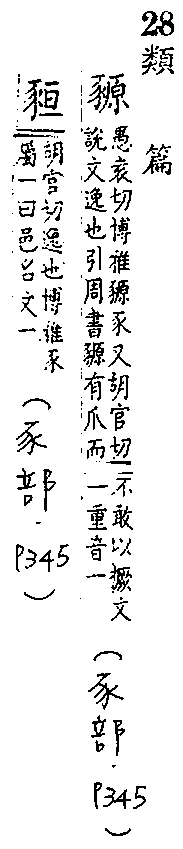 28 類篇
豲
愚袁切博雅豲豕又胡官切
說文逸也引周書豲有爪而
不敢以撅文
一重音一
(豕部.P345)
胡官切逸也博雅豕
屬一曰邑名文一
(豕部.P345)